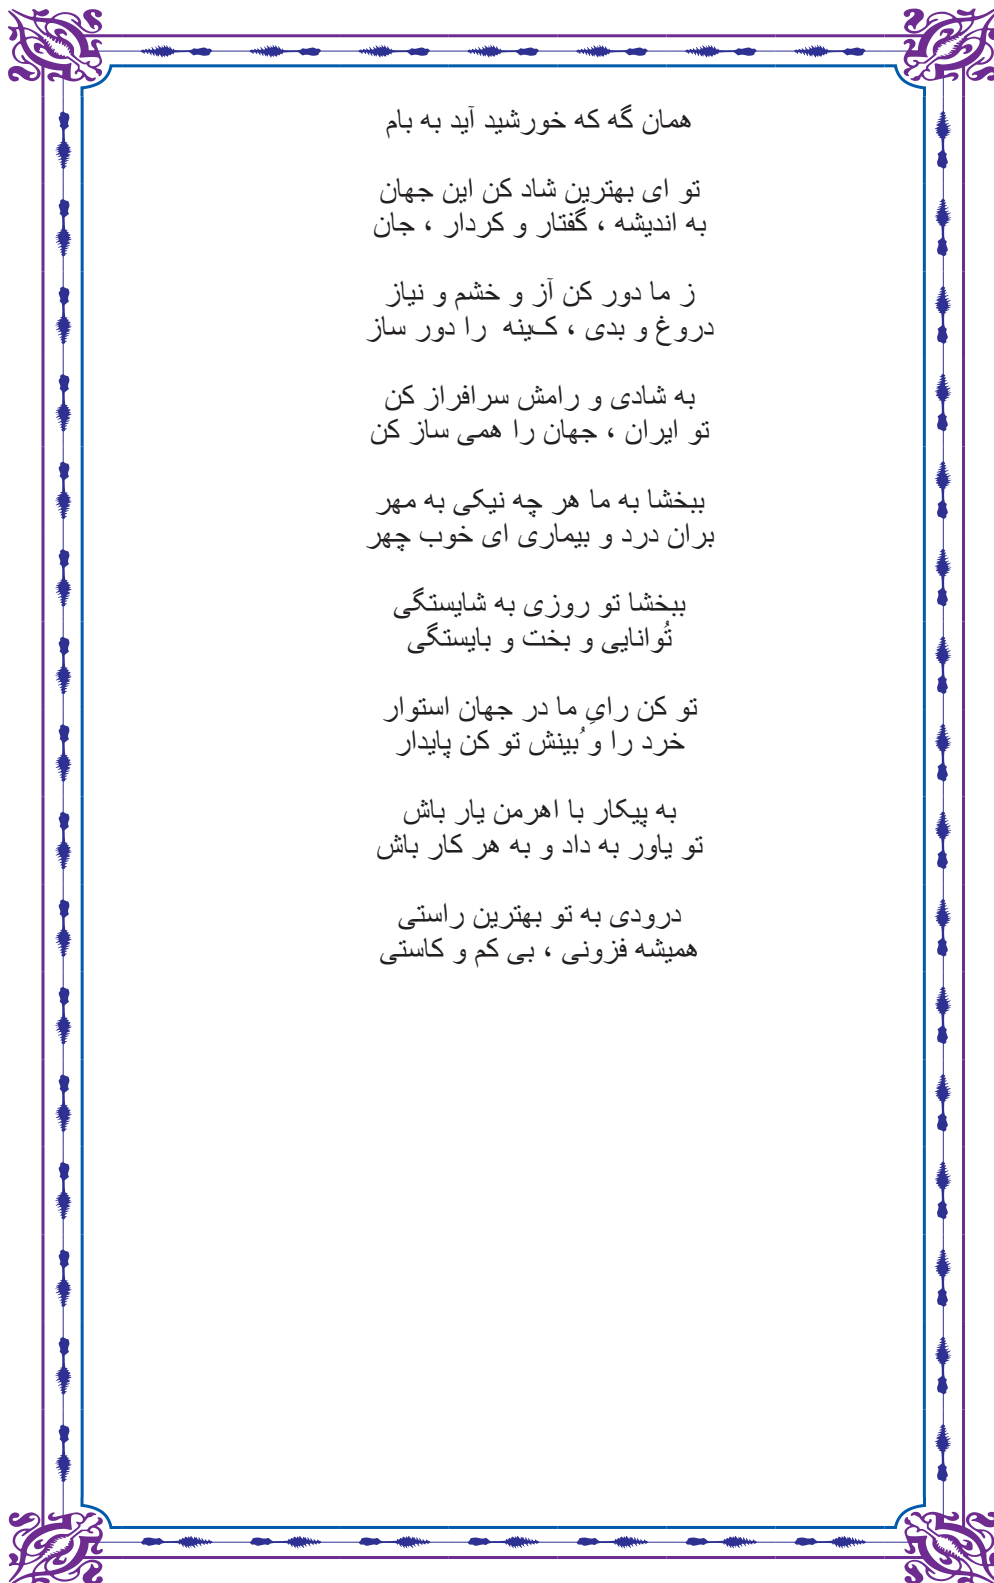 همان گه که خورشید آید به بام
تو ای بهترین شاد کن این جهان
به اندیشه ، گفتار و کردار ، جان
ز ما دور کن آز و خشم و نیاز
دروغ و بدی ، کینه را دور ساز
به شادی و رامش سرافراز کن
تو ایران ، جهان را همی ساز کن
ببخشا به ما هر چه نیکی به مهر
بران درد و بیماری ای خوب چهر
ببخشا تو روزی به شایستگی
تُوانایی و بخت و بایستگی
تو کن رایِ ما در جهان استوار
خرد را و ُبینش تو کن پایدار
به پیکار با اهرمن یار باش
تو یاور به داد و به هر کار باش
درودی به تو بهترین راستی
همیشه فزونی ، بی کم و کاستی